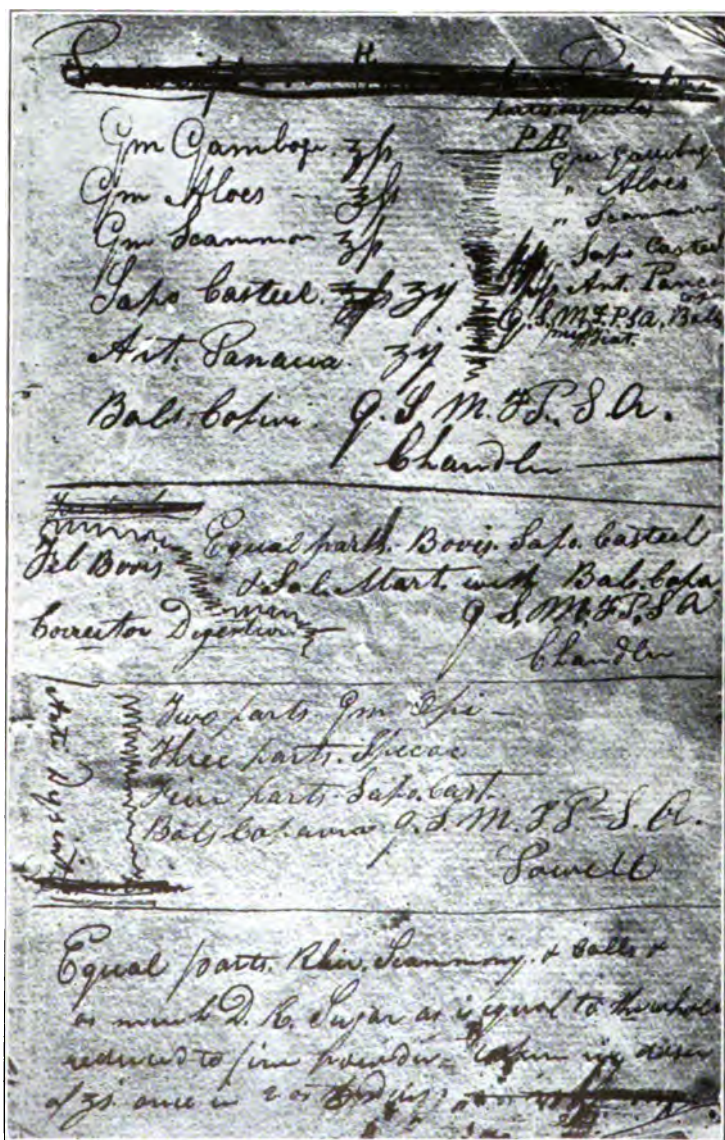 Gm Gamboge ʒfs
Gm Aloes - ʒfs
Gm Scammon ʒfs
Sapo Casteel. ʒij
Ant. Panacea. ʒij
Bals. Copive. Q. S. M. F. P. S. A.
Chandler
partes aequales
Gm Gamboge
" Aloes
" Scammon
Sapo Casteel
Ant. Panac
Q. S. M. F. P. S. A. Bals
Fel Bovis
Corrector Digestive
Equal parts. Bovis. Sapo. Casteel
& Sal. Mart. with Bals. Copa.
Q S. M. F. P. S A
Chandler
Anti Dysint
Two parts Gm Opi -
Three parts. Ipecac
Four parts. Sapo. Cast.
Bals Copaiva Q. S. M. F. P. S. A.
Powell
Equal parts. Rhei. Scammony. &
as much D. R. Sugar as is equal to the whole
reduced to fine powder - in doses
of ʒi once in 2 or 3 days